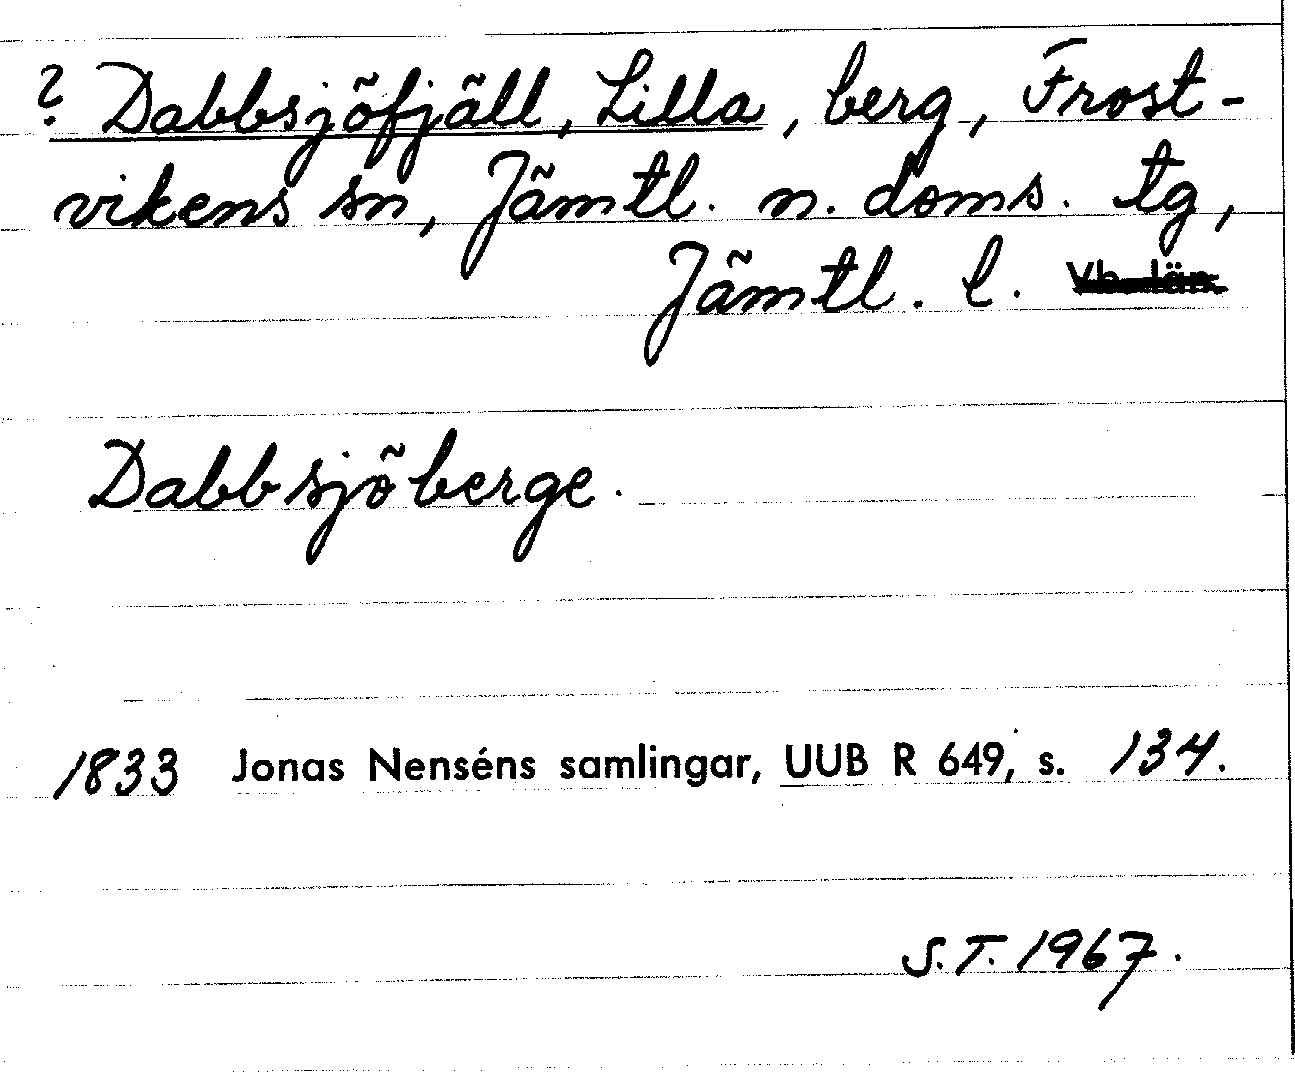 ? Dabbsjöfjäll, Lilla, berg, Frost-
vikens sn, Jämtl. n. doms. tg,
Jämtl. l. Vb. län.
Dabbsjöberge.
1833 Jonas Nenséns samlingar, UUB R 649, s. 134.
S.T. 1967.